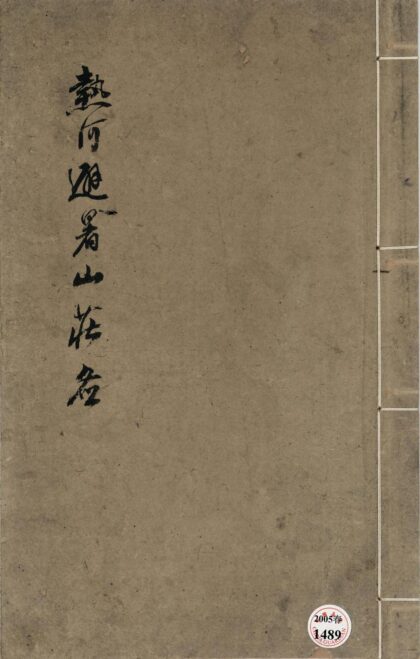 熱河避暑山莊
2005春
1489